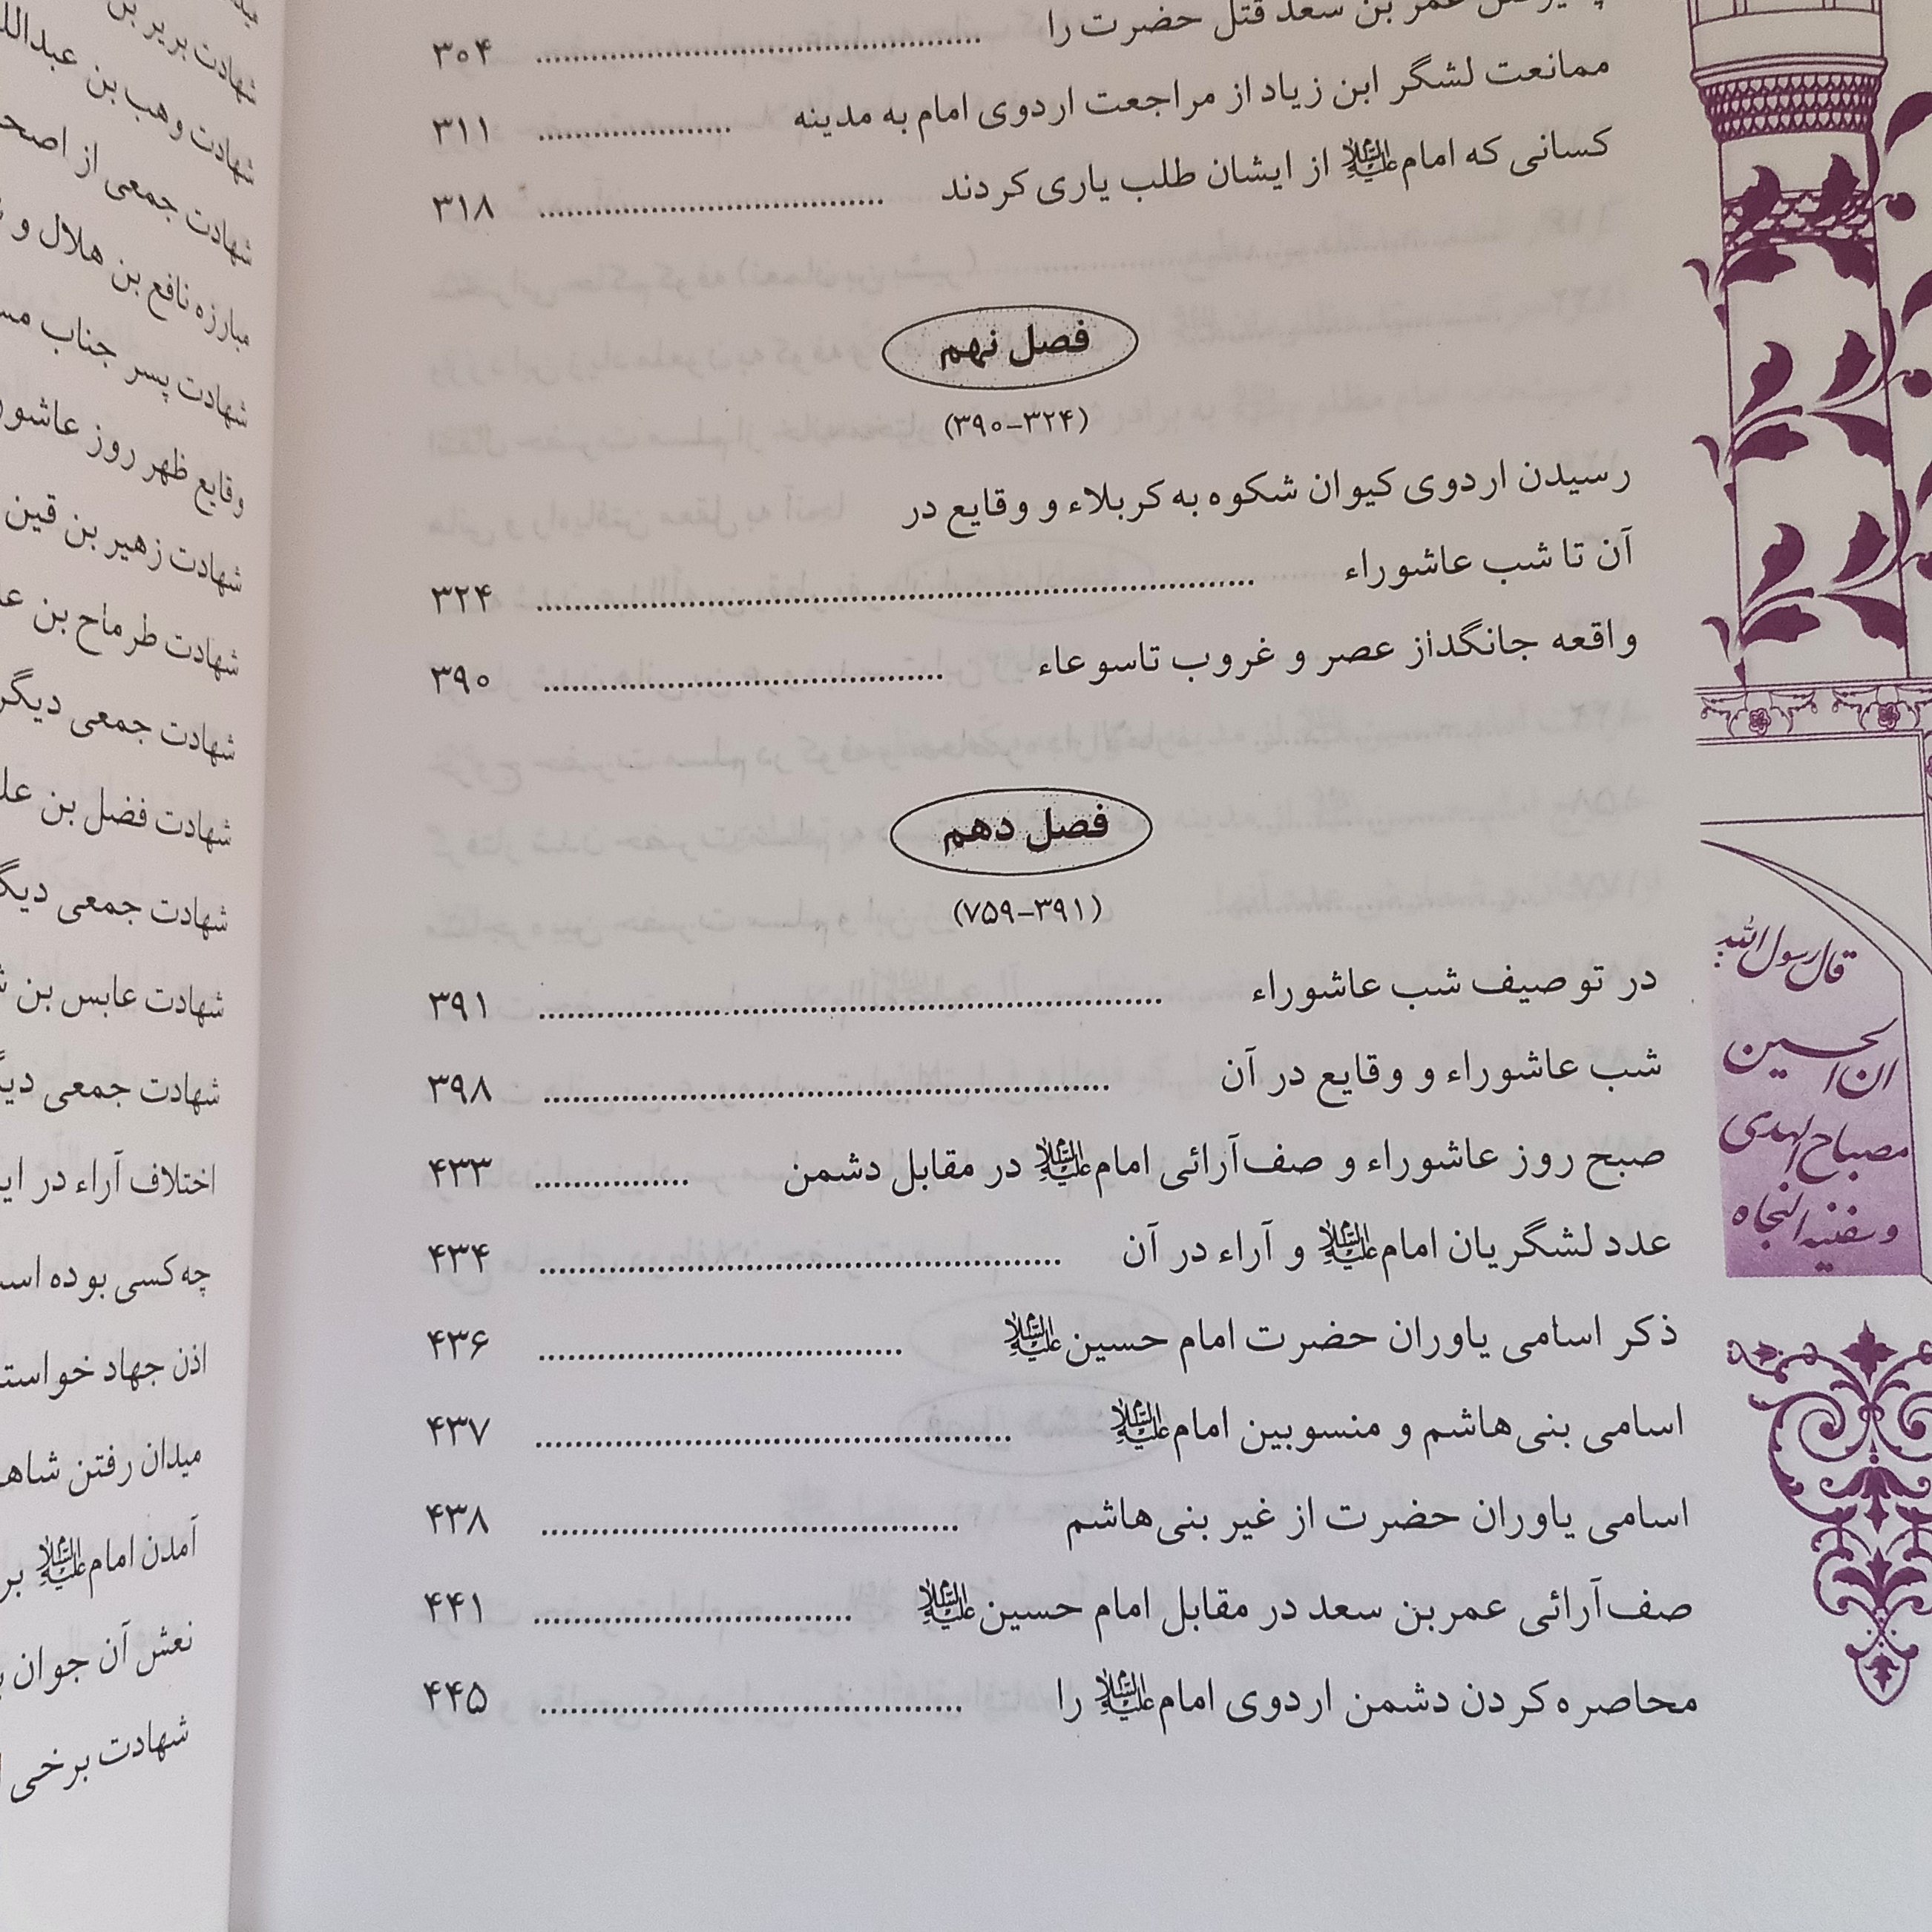 عمر بن سعد قتل حضرت را ۳۰۴
ممانعت لشگر ابن زیاد از مراجعت اردوی امام به مدینه ۳۱۱
کسانی که امام علیه‌السلام از ایشان طلب یاری کردند ۳۱۸
فصل نهم
(۳۲۴-۳۹۰)
رسیدن اردوی کیوان شکوه به کربلاء و وقایع در
آن تا شب عاشوراء ۳۲۴
واقعه جانگداز عصر و غروب تاسوعاء ۳۹۰
فصل دهم
(۳۹۱-۷۵۹)
در توصیف شب عاشوراء ۳۹۱
شب عاشوراء و وقایع در آن ۳۹۸
صبح روز عاشوراء و صف‌آرائی امام علیه‌السلام در مقابل دشمن ۴۳۳
عدد لشگریان امام علیه‌السلام و آراء در آن ۴۳۴
ذکر اسامی یاوران حضرت امام حسین علیه‌السلام ۴۳۶
اسامی بنی‌هاشم و منسوبین امام علیه‌السلام ۴۳۷
اسامی یاوران حضرت از غیر بنی‌هاشم ۴۳۸
صف‌آرائی عمربن سعد در مقابل امام حسین علیه‌السلام ۴۴۱
محاصره کردن دشمن اردوی امام علیه‌السلام را ۴۴۵
قال رسول الله
ان الحسین
مصباح الهدی
و سفینة النجاه
شهادت بریر بن
شهادت وهب بن
شهادت جمعی از
مبارزه نافع بن هلال و
شهادت پسر جناب
وقایع ظهر روز
شهادت زهیر بن قین
شهادت طرماح بن
شهادت جمعی دیگر
شهادت فضل بن
شهادت جمعی
شهادت عابس بن
شهادت جمعی
اختلاف آراء در
چه کسی بوده
اذن جهاد
میدان رفتن
آمدن امام علیه‌السلام
نعش آن جوان
شهادت برخی